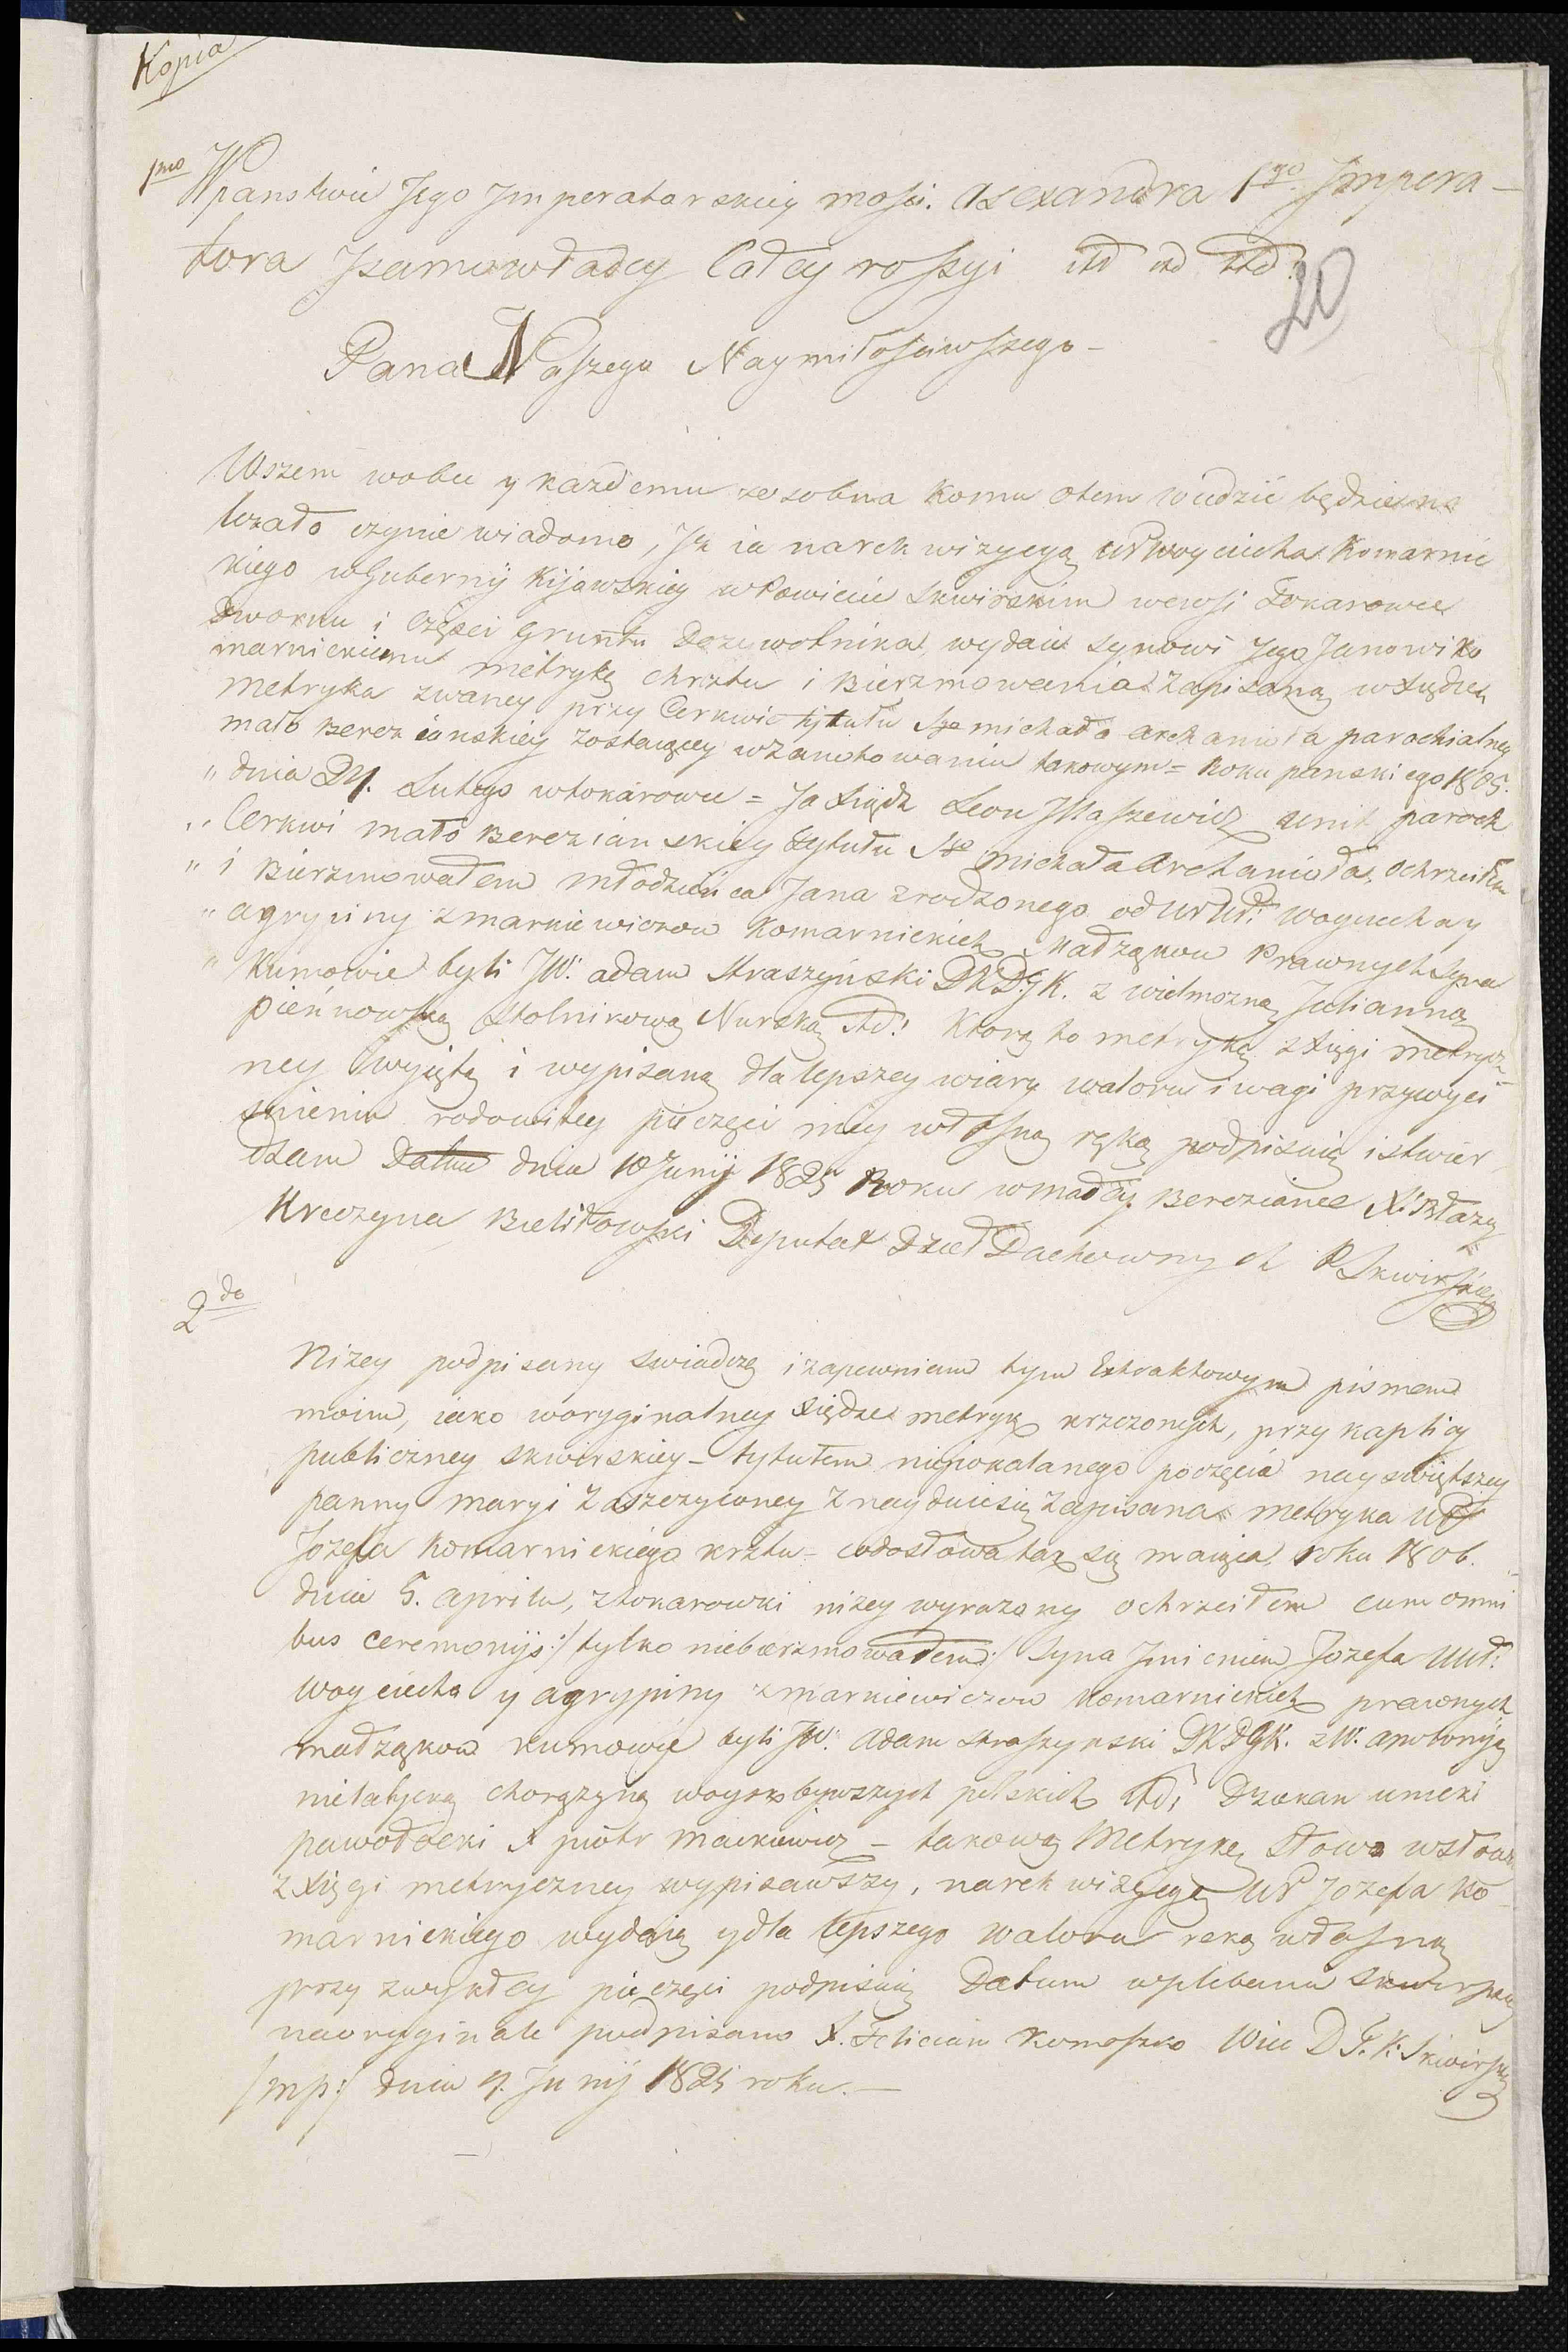 Kopia
1mo W panstwie Jego Imperatorskiey mości. Alexandra 1go Impera-
tora Isamowładcy Całey rossyi itd itd itd.
20
Pana Naszego Naymiłosciwszego -
Wszem wobec y każdemu zosobna komu otem wiedzić będzie na
leżało czynie wiadomo, Iż ia narek wizycyą Wojciecha Komarnic
kiego w Gubernij Kijowskiey w Powiecie Skwirskim we wsi Tokarowce
Dworku i Części Gruntu Dożywotnika, wydaie synowi Jego Janowi Ko
marnickiemu metrykę chrztu i Bierzmowania zapisaną w Xiędze
Metryka zwaney przy Cerkwie tytułu Sgo michała archanioła parochialney
mało Berezianskiey zostaiącey wzanotowaniu takowym = Roku panskiego 1805.
" dnia 24. Lutego wtokarowce = Ja Xiądz Leon Illaszewicz unit paroch
" Cerkwi mało Berezianskiey tytułu Sgo michała Archanioła, ochrzciłem
" i Bierzmowałem młodzieńca Jana zrodzonego od Wojciecha y
" agrypiny zmarkiewiczow Komarnickich Małżąkow Prawnych Syna
" Kumowie byli JW: adam Straszyński DKDGK. z wielmożną Julianną
pieńkowską Stolnikową Nurską itd: Którą to metrykę z Xięgi metrycz
ney wyiętą i wypisaną dla lepszey wiary waloru i wagi przywyci
śnieniu rodowitey pieczęci mey własną ręką podpisuię i stwier
dzam Datum dnia 10 Junij 1825 Roku w małey Bereziance X: Błażey
Kreczyna Bielitowski Deputat Dzieł Duchownych P. Skwirskiego
2do
Niżey podpisany swiadczę i zapewniam tym Extraktowym pismem
moim, iako woryginalney Xiędze metryk krzczonych, przy kaplicy
publiczney skwirskiey - tytułem niepokalanego poczęcia nayswiętszey
panny maryi zaszczyconey znayduiesię zapisana metryka
Józefa Komarnickiego krztu - codosłowa tak się maiąca, roku 1806.
dnia 5. aprila, ztokarowki niżey wyrażony ochrzciłem cum omni
bus ceremonijs :/ tylko niebierzmowałem :/ Syna Jmieniem Jozefa
Woyciecha y agrypiny zmarkiewiczow Komarnickich prawnych
małżąkow kumowie byli JW: Adam Straszynski DKDGK. z W. apolonyą
chorążyną woysk bywszych polskich itd: Dziekan umeki
pawołocki X piotr Mackiewicz - takową Metrykę słowo wsłowo
z Xięgi metryczney wypisawszy, narek wizycyę Jozefa Ko
marnickiego wydaię ydla lepszego waloru ręką własną
przy zwykłey pieczęci podpisuię Datum wplebanii Skwirskiey
naoryginale podpisano X. Felician Komoszko Wice D S. K: Skwirski
/mp:/ dnia 9. Junij 1825 roku. -